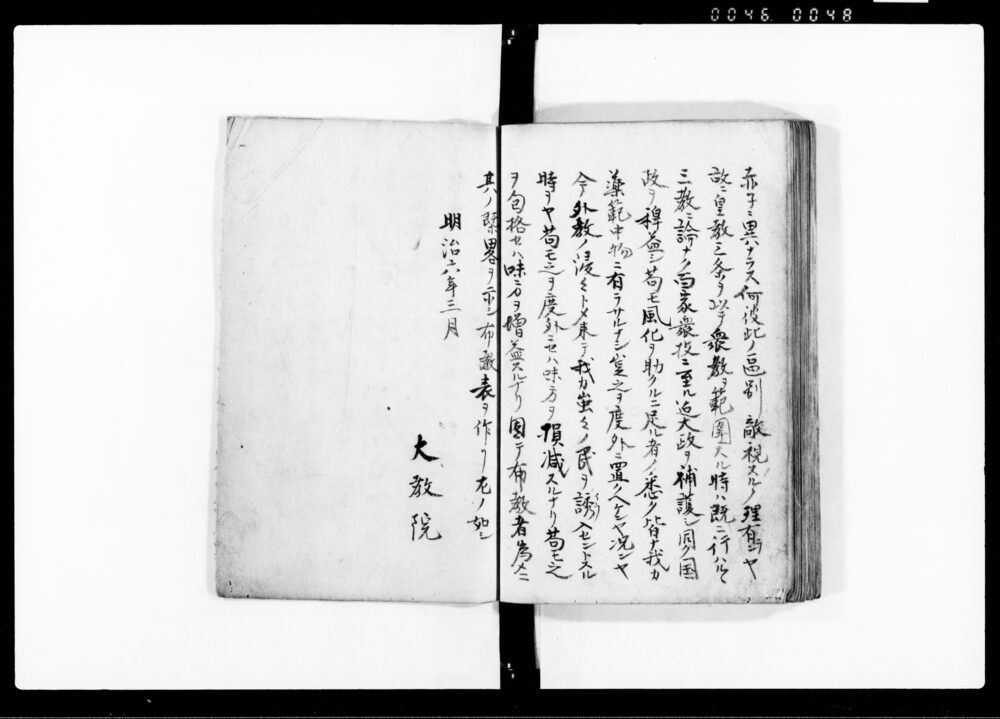 0046 0048
赤子ニ異ハナラス何彼此ノ區別敵視スルノ理有ンヤ
故ニ皇教三条ヲ以テ衆教ヲ範圍スル時ハ既ニ行ハルヽ
三教ニ論ナク百家衆技ニ至ル迠大政ヲ補護シ同ク国
政ヲ稗益シ苟モ風化ヲ助クルニ足ル者ノ悉ク皆ナ我カ
薬範中物ニ有ラサルナシ豈之ヲ度外ニ置クヘケンヤ况ンヤ
今外教ノ浸々トメ来テ我カ蚩々ノ民ヲ誘入セントスル
時ヲヤ苟モ之ヲ度外ニセハ味方ヲ損减スルナリ苟モ之
ヲ包格セハ味方ヲ増益スルナリ因テ布教者ノ為メニ
其ノ槩畧ヲ示シ布教表ヲ作リ左ノ如シ
明治六年三月
大教院